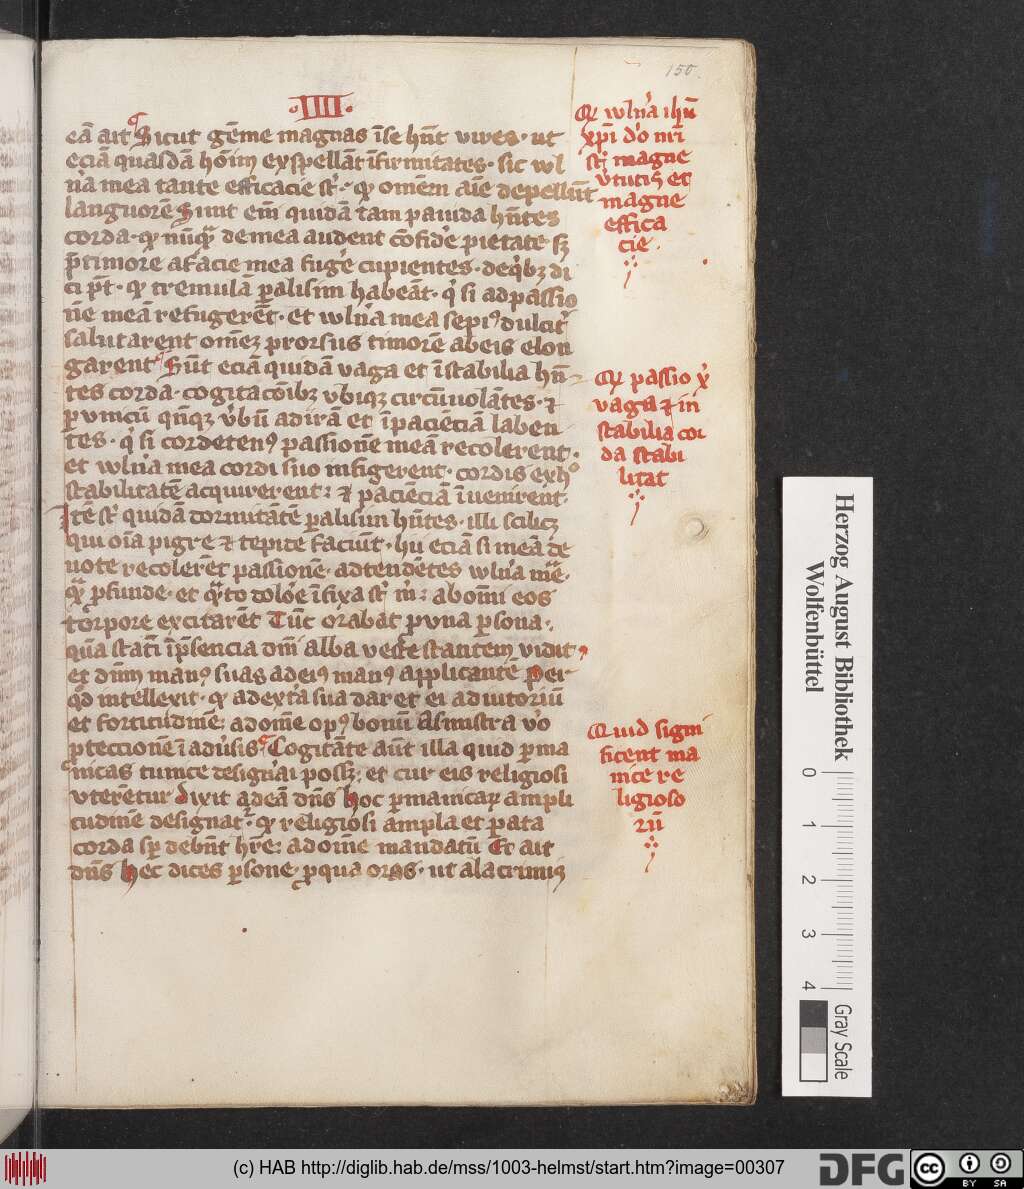 150.
·IIII·
eā ait Sicut gēme magnas ī se hn̄t vires· ut
eciā quasdā hoīm expellāt īfirmitates· sic wl
n̄a mea tante efficacie st̄·
languorē Sunt em̄ quidā tam pauida hn̄tes
corda· de mea audent cōfid'e pietate
p̄ timore a facie mea fug'e cupientes· di
ci tremulā palisim habeāt· si ad passio
nē meā refugerēt· et wln̄a mea sepi⁹ dulcit'
salutarent prorsus timorē ab eis elon
garent Sūt eciā quidā vaga et īstabilia hn̄
tes corda· vbiqz circūuolātes· ⁊
v̓bū ad irā et īpaciēciā laben
tes· si passionē meā recolerent·
et wln̄a mea cordi suo infigerent· cordis
stabilitatē acquirerent: ⁊ paciēciā īuenirent·
Itē st̄ quidā dormitātē palisim hn̄tes· illi scilicz
qui oīa pigre ⁊ tepite faciūt· hii eciā si meā de
uote recolerēt passionē· adtendētes wln̄a
p̄funde· et īfixa
torpore excitarēt Tūc orabat p vna psona·
quā statī ī p̄sencia dm̄i alba veste stantem vidit
et dn̄m man⁹ suas ad ei⁹ man⁹ applicantē Per
qd̄ intellexit· adextā sua daret ei adiutoriū
et fortitudinē: ad om̄e op⁹ bonū A sinistra v̓o
p̄tectionē ī adūsis Cogitāte aūt illa quid p ma
nicas tunice possz· et cur eis religiosi
vterētur Dixit ad eā dn̄s hoc p manicar̄ ampli
tudinē designat̄· religiosi ampla et pata
corda debn̄t hr̄e: ad om̄e mandatū Et ait
dn̄s hec dices psone· p qua oras· ut alacrimis
wln̄'a ihū
xp̄i dō nr̄i
st̄ magne
v̓tutis et
magne
effica
cie·
passio
vaga ⁊ in
stabilia cor
da stabi
litat
Quid signi
ficent ma
nice re
ligioso
rū
Herzog August Bibliothek
Wolfenbüttel
0 1 2 3 4
Gray Scale
(c) HAB http://diglib.hab.de/mss/1003-helmst/start.htm?image=00307
DFG
cc BY SA